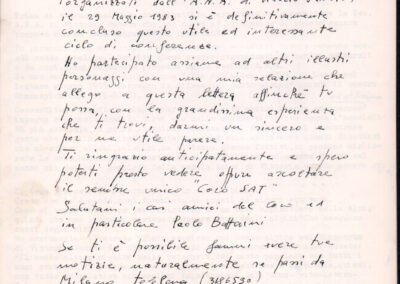 organizzati dall'A.N.A. di
il 29 Maggio 1983 si è definitivamente
concluso questo utile ed interessante
ciclo di conferenze.
Ho partecipato assieme ad altri illustri
personaggi con una mia relazione che
allego a questa lettera affinché tu
possa, con la grandissima esperienza
che ti trovi, darmi un sincero e
per me utile parere.
Ti ringrazio anticipatamente e spero
poterti presto vedere oppure ascoltare
il sempre unico "Coro SAT"
Salutami i cari amici del Coro ed
in particolare Paolo
Se ti è possibile fammi avere tue
notizie, naturalmente se passi da
Milano telefona (3496530)